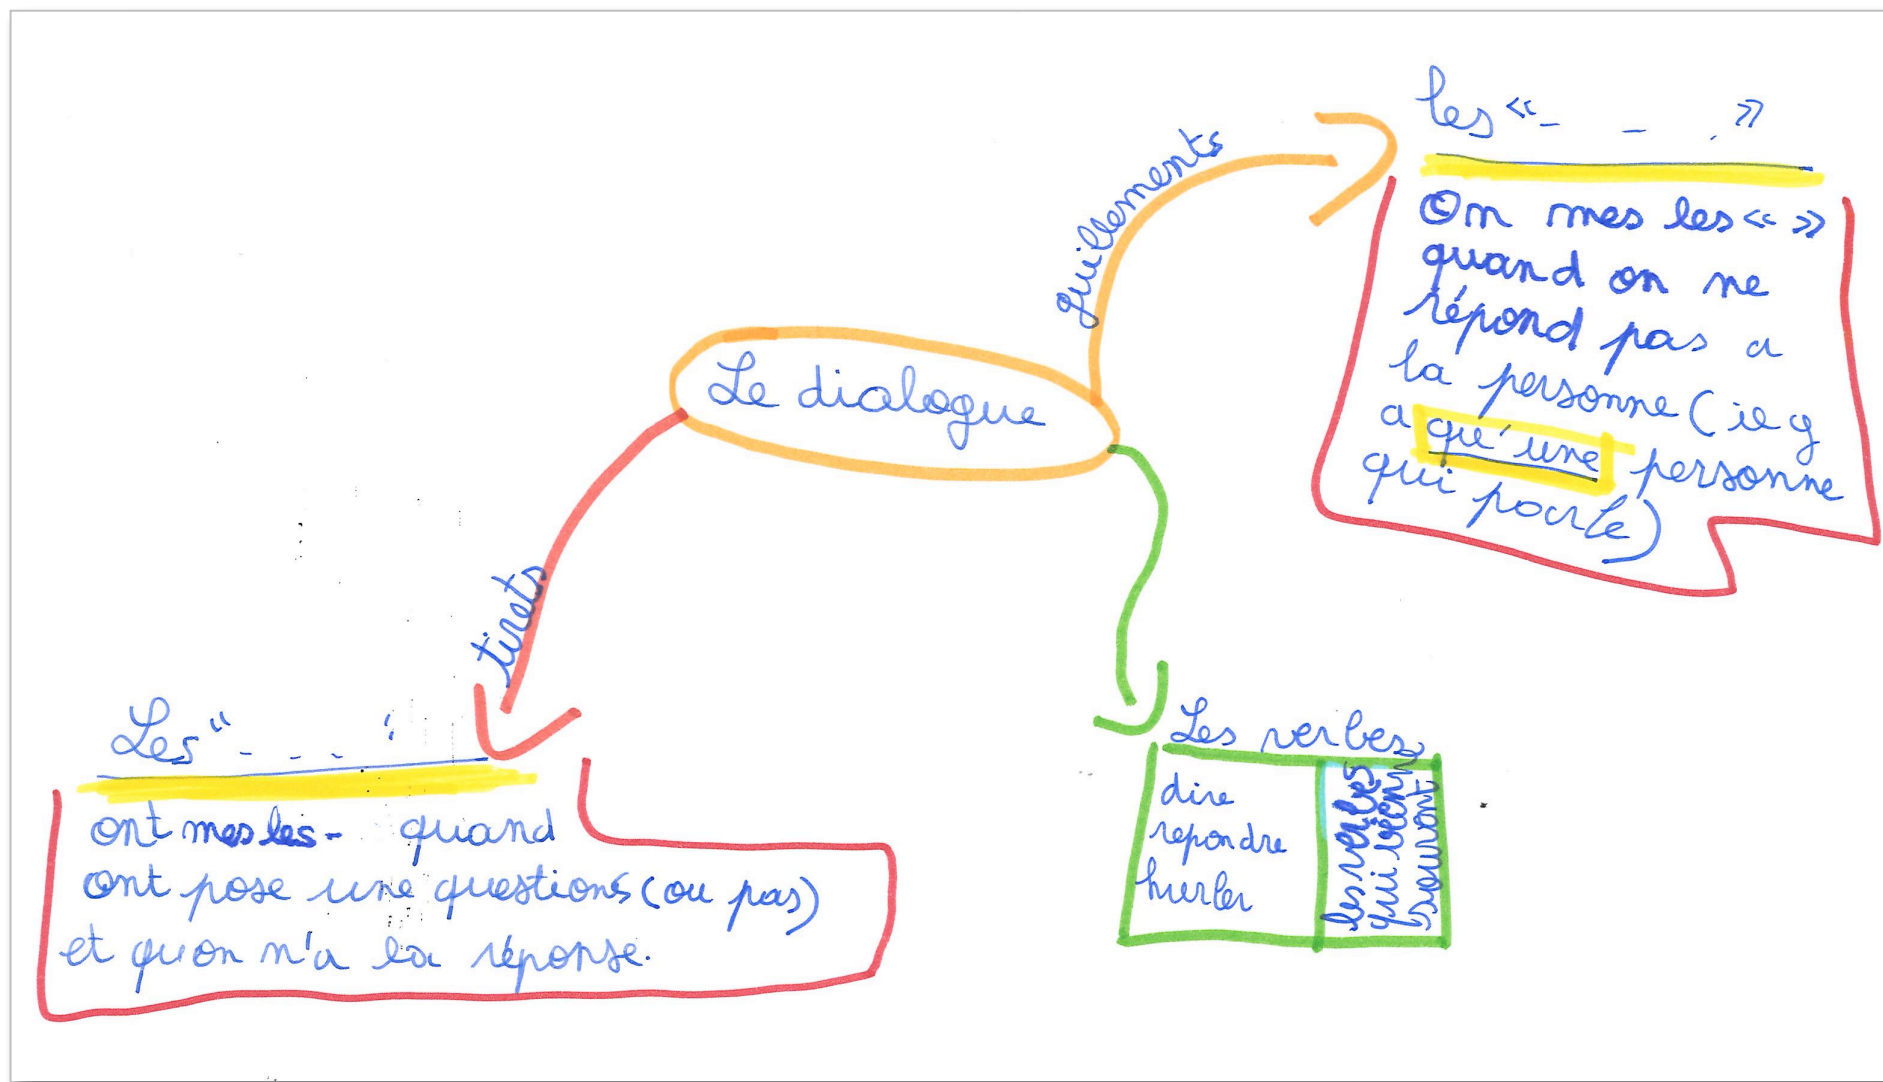 Le dialogue
guillements
les «- - . »
On mes les « »
quand on ne
répond pas a
la personne (ie y
a qu'une personne
qui parle)
tirets
Les " - - - "
ont mes les - quand
ont pose une questions (ou pas)
et qu'on n'a la réponse.
Les verbes
dire
repondre
hurler
les verbes
qui
souvont